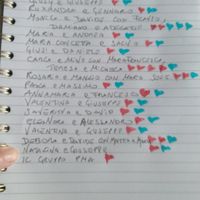 GIUSY E GIUSEPPE
ALESSANDRO E GENNARO
MONICA E DAVIDE CON
MARIA E ANDREA
MARIA CONCETTA E SALVO
GIUSI E DANILO
CARLA E NINO CON MARIAFRANCESCA,
TERESA E MICHELA
ROSARIO E MANUELA CON MARIA SOLE
PAOLA E MASSIMO
ANNAMARIA E FRANCESCO
VALENTINA E GIUSEPPE
E DANILO
ELEONORA E ALESSANDRO
VALENTINA E GIUSEPPE
DEBORA E DAVIDE CON MATTEO E
NATASCIA E GIUSEPPE
IL GRUPPO PMA